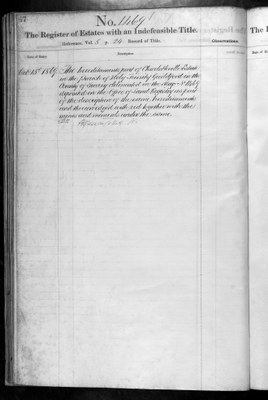 57
No. 1469
The Register of Estates with an Indefeasible Title.
Reference, Vol. 5 p. 56 Record of Title.
Date of Entry. Description. Observations.
Nov 18th 1869 The hereditaments part of Charlotteville Estate
in the Parish of Holy Trinity Guildford in the
County of Surrey delineated in the Map No 1469
deposited in the Office of Land Registry as part
of the description of the same hereditaments
and thereon edged with red together with the
mines and minerals under the same